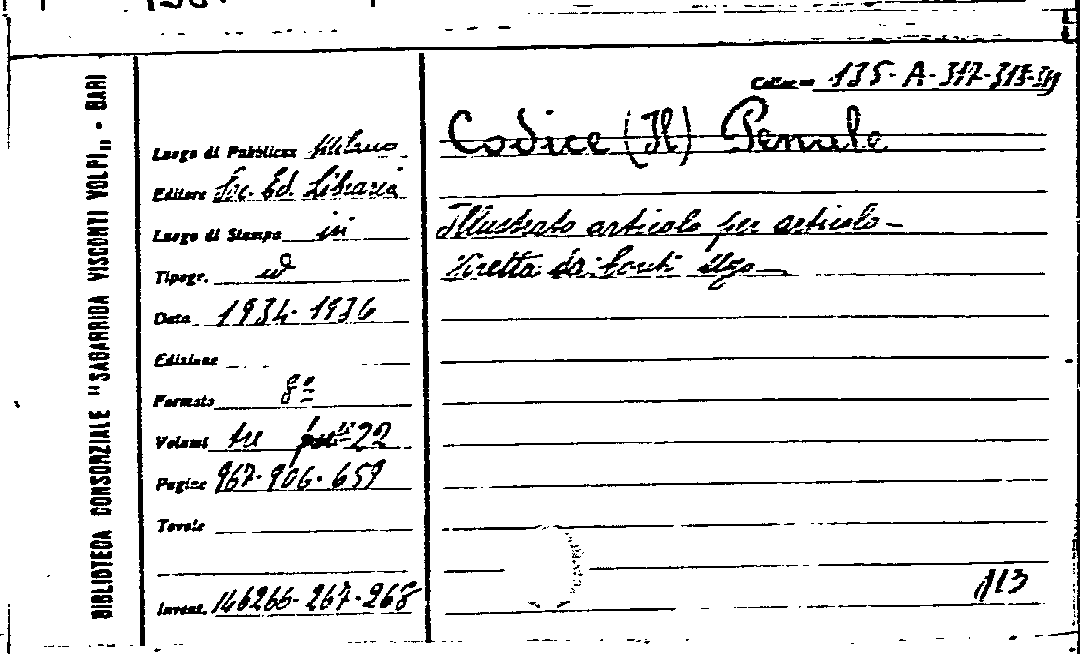 BIBLIOTECA CONSORZIALE "SAGARRIGA VISCONTI VOLPI" - BARI
135-A-317-318-319
Codice (Il) Penale
Luogo di Pubblicaz. Milano
Editore Soc. Ed. Libraria
Illustrato articolo per articolo -
Luogo di Stampa ivi
Diretta da Conti Ugo
Tipogr. id
Data 1934-1936
Edizione
Formato 8º
Volumi tre 22
Pagine 967-906-659
Tavole
Invent. 146266-267-268
113